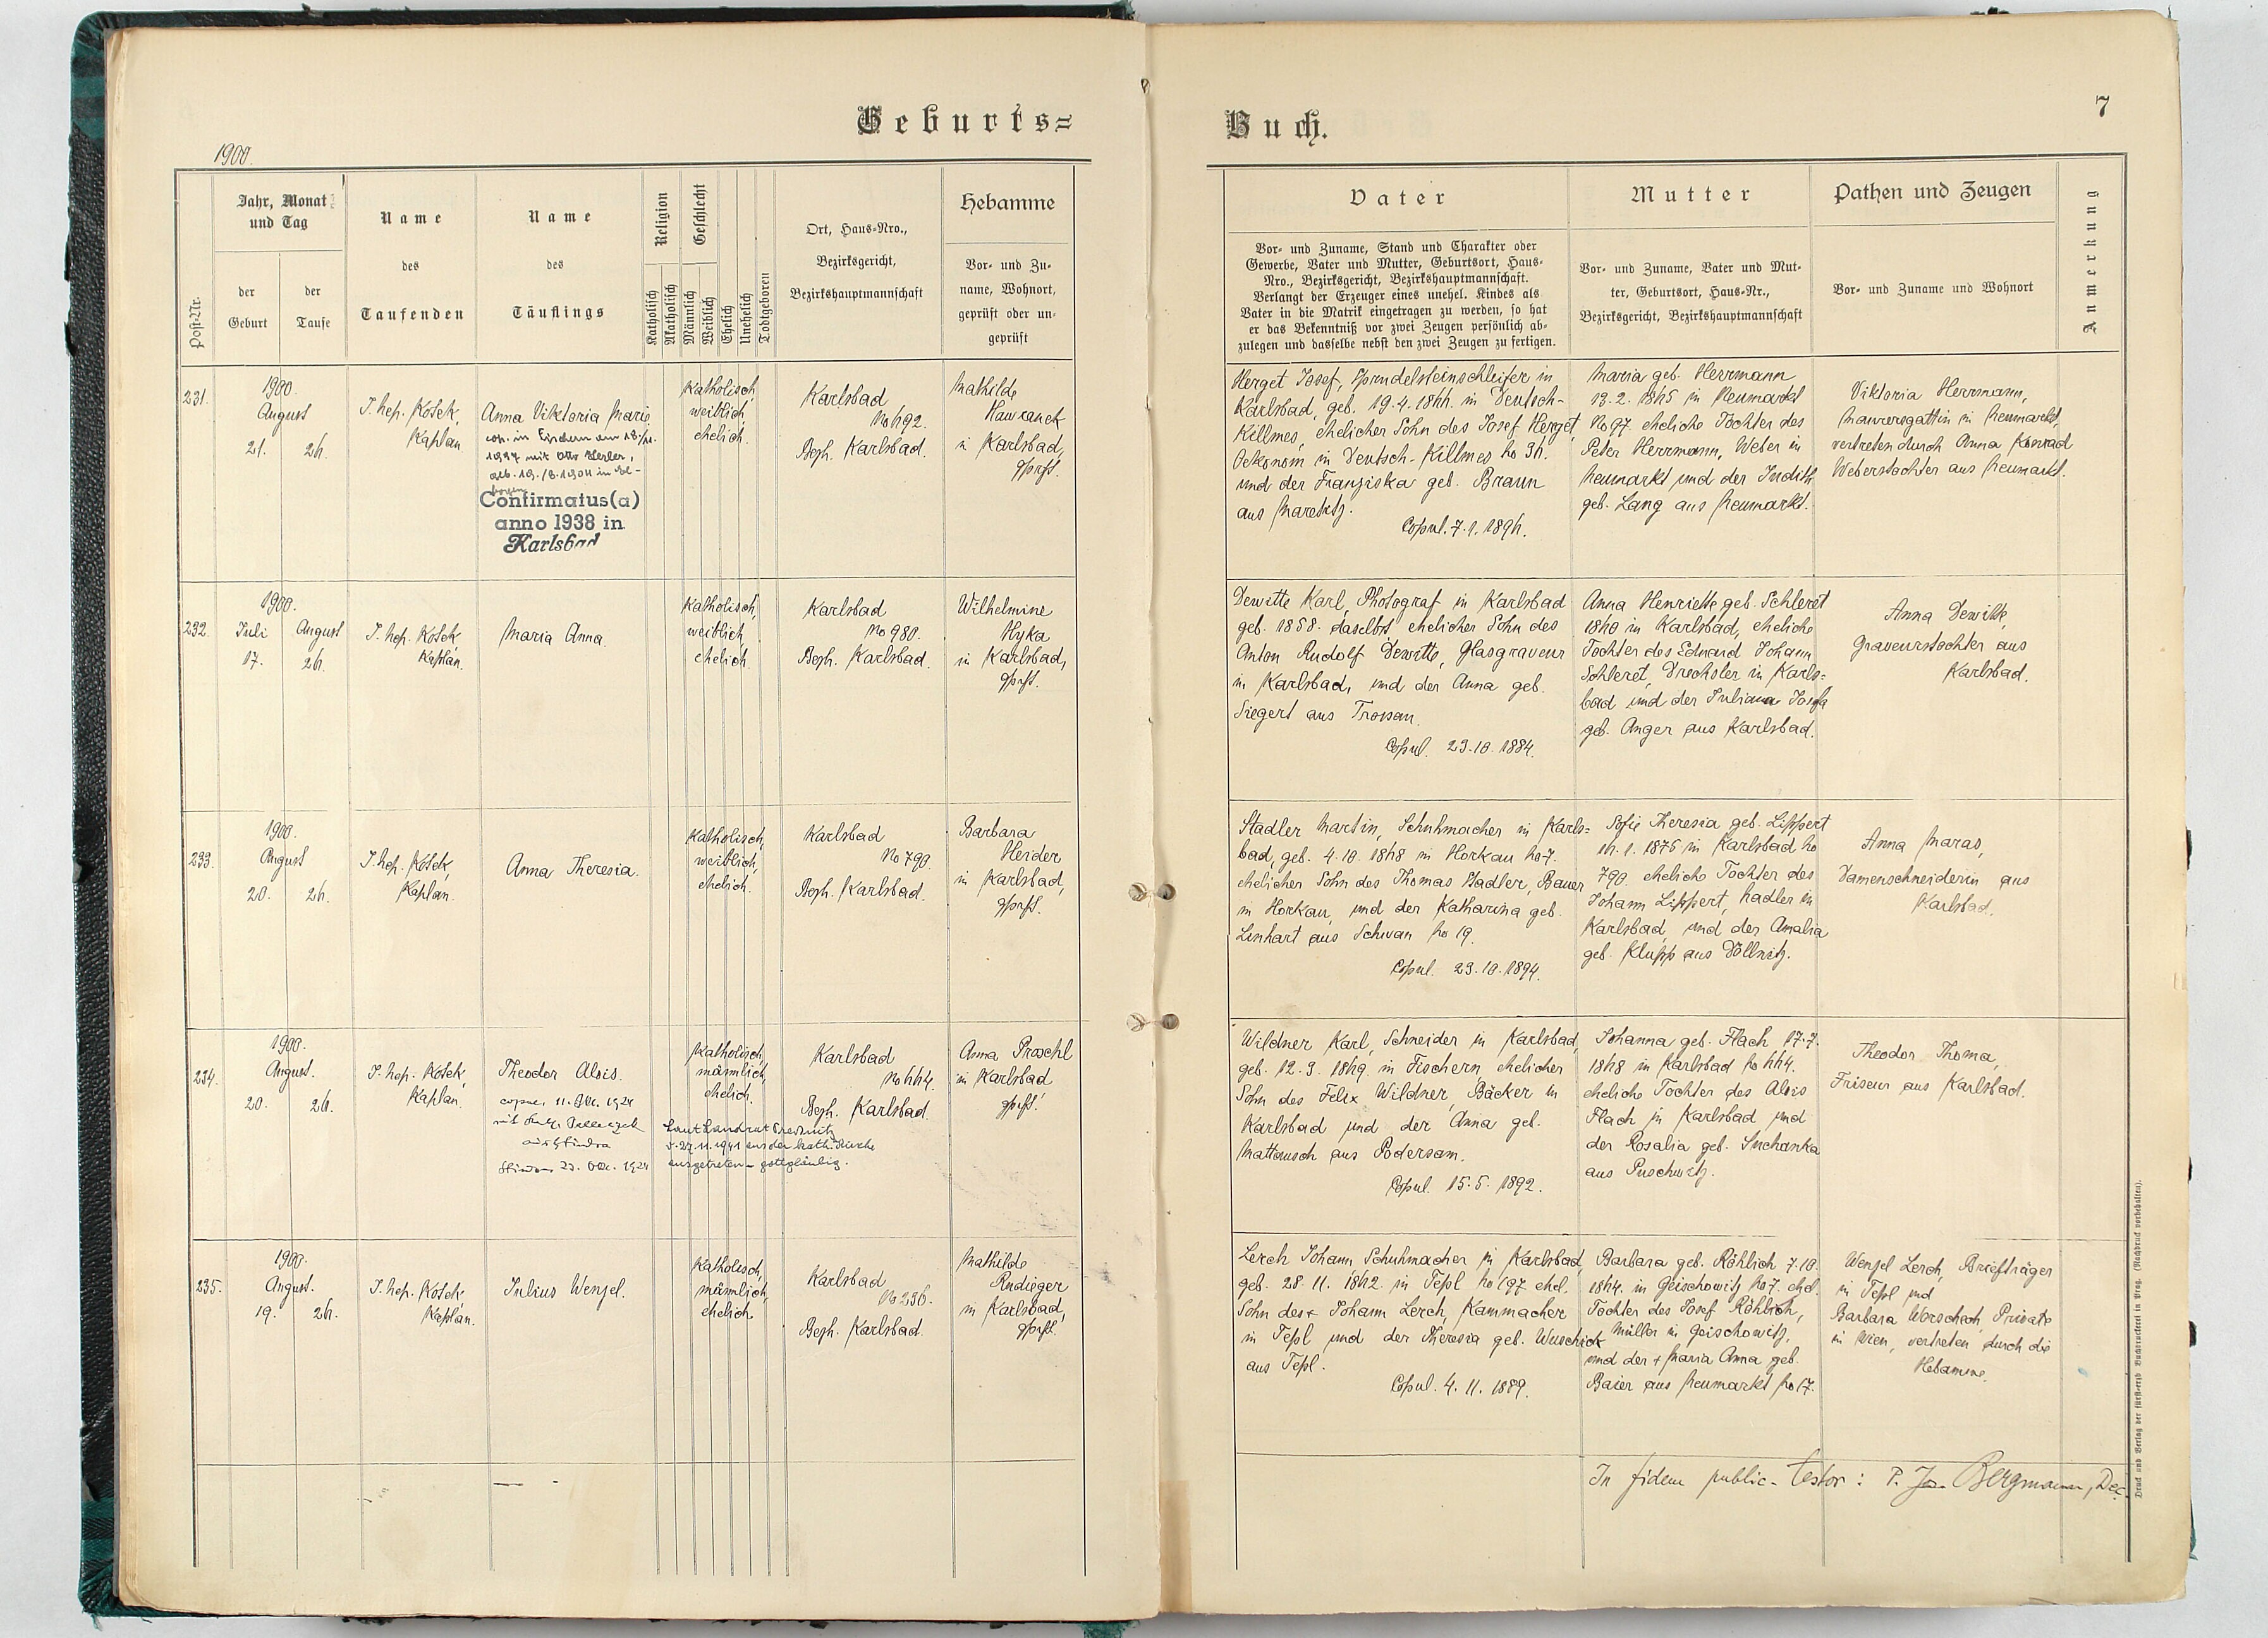 Geburts=
1900.
Post-Nr.
Jahr, Monat
und Tag
der
Geburt
der
Taufe
Name
des
Taufenden
Name
des
Täuflings
Religion
Katholisch
Akatholisch
Geschlecht
Männlich
Weiblich
Ehelich
Unehelich
Todtgeboren
Ort, Haus-Nro.,
Bezirksgericht,
Bezirkshauptmannschaft
Hebamme
Vor- und Zu-
name, Wohnort,
geprüft oder un-
geprüft
231.
1900.
August
21. 26.
J. nep. Košek,
Kaplan.
Anna Viktoria Marie
Confirmatus(a)
anno 1938 in
Karlsbad
Katholisch,
weiblich,
ehelich.
Karlsbad
No 692.
Bezh. Karlsbad.
Mathilde
Hawranek
in Karlsbad,
gprft.
232.
1900.
Juli August
17. 26.
J. nep. Košek,
Kaplan.
Maria Anna.
Katholisch,
weiblich,
ehelich.
Karlsbad
No 980.
Bezh. Karlsbad.
Wilhelmine
Hyka
in Karlsbad,
gprft.
233.
1900.
August
20. 26.
J. nep. Košek,
Kaplan.
Anna Theresia.
Katholisch,
weiblich,
ehelich.
Karlsbad
No 790.
Bezh. Karlsbad.
Barbara
Heider
in Karlsbad,
gprft.
234.
1900.
August.
20. 26.
J. nep. Košek,
Kaplan.
Theodor Alois.
copul. 11. Okt. 1924
1924
Katholisch,
männlich,
ehelich.
Laut Landrat
v. 27.11.1941 aus der kath. Kirche
ausgetreten - gottgläubig.
Karlsbad
No 664.
Bezh. Karlsbad.
Anna Proschl
in Karlsbad
gprft.
235.
1900.
August.
19. 26.
J. nep. Košek,
Kaplan.
Julius Wenzel.
Katholisch,
männlich,
ehelich.
Karlsbad
No 236.
Bezh. Karlsbad.
Mathilde
Rudieger
in Karlsbad,
gprft.
Buch.
7
Vater
Vor- und Zuname, Stand und Charakter oder
Gewerbe, Vater und Mutter, Geburtsort, Haus-
Nro., Bezirksgericht, Bezirkshauptmannschaft.
Verlangt der Erzeuger eines unehel. Kindes als
Vater in die Matrik eingetragen zu werden, so hat
er das Bekenntniß vor zwei Zeugen persönlich ab-
zulegen und dasselbe nebst den zwei Zeugen zu fertigen.
Mutter
Vor- und Zuname, Vater und Mut-
ter, Geburtsort, Haus-Nr.,
Bezirksgericht, Bezirkshauptmannschaft
Pathen und Zeugen
Vor- und Zuname und Wohnort
Anmerkung
Herget Josef, Sprudelsteinschleifer in
Karlsbad, geb. 19.4.1866. in Deutsch-
Killmes, ehelicher Sohn des Josef Herget,
Oekonom in Deutsch-Killmes No 36.
und der Franziska geb. Braun
aus
Copul. 7.1.1896.
Maria geb. Herrmann
13.2.1865 in Neumarkt
No 97 eheliche Tochter des
Peter Herrmann, Weber in
Neumarkt und der Judith
geb. Lang aus Neumarkt.
Viktoria Herrmann,
Maurersgattin in Neumarkt,
vertreten durch Anna Konrad
Weberstochter aus Neumarkt.
Dewitte Karl, Photograf in Karlsbad
geb. 1858. daselbst ehelicher Sohn des
Anton Rudolf Dewitte, Glasgraveur
in Karlsbad, und der Anna geb.
Siegert aus Trossau.
Copul. 23.10.1884.
Anna Henriette geb. Schleret
1860 in Karlsbad, eheliche
Tochter des Eduard Johann
Schleret, Drechsler in Karls=
bad und der Juliana Josefa
geb. Anger aus Karlsbad.
Anna Dewitte,
Graveurstochter aus
Karlsbad.
Stadler Martin, Schuhmacher in Karls=
bad, geb. 4.10.1868 in Horkau No 7.
ehelicher Sohn des Thomas Stadler, Bauer
in Horkau, und der Katharina geb.
Linhart aus Schwan No 19.
Copul. 23.10.1894.
Sofie Theresia geb. Lippert
16.1.1875 in Karlsbad No
790. eheliche Tochter des
Johann Lippert, Nadler in
Karlsbad, und der Amalia
geb. Klupp aus Döllnitz.
Anna Maras,
Damenschneiderin aus
Karlsbad.
Wildner Karl, Schneider in Karlsbad,
geb. 12.3.1869. in Fischern, ehelicher
Sohn des Felix Wildner, Bäcker in
Karlsbad und der Anna geb.
Mattausch aus Podersam.
Copul. 15.5.1892.
Johanna geb. Flach 17.7.
1868 in Karlsbad No 664.
eheliche Tochter des Alois
Flach in Karlsbad und
der Rosalia geb. Suchanka
aus Puschwitz.
Theodor Thoma,
Friseur aus Karlsbad.
Lerch Johann Schuhmacher in Karlsbad,
geb. 28.11.1862. in Tepl No 197 ehel.
Sohn des + Johann Lerch, Kammacher
in Tepl und der Theresia geb. Wuschick
aus Tepl.
Copul. 4.11.1889.
Barbara geb. Röhlich 7.10.
1864. in Geischowitz No 7. ehel.
Tochter des Josef Röhlich,
Müller in Geischowitz,
und der + Maria Anna geb.
Baier aus Neumarkt No 17.
Wenzel Lerch, Briefträger
in Tepl und
Barbara Worschech, Private
in Wien, vertreten durch die
Hebamme.
In fidem public. testor: P. Jos. Bergmann, Dec.
Druck und Verlag der fürst-erzb. Buchdruckerei in Prag. (Nachdruck vorbehalten).